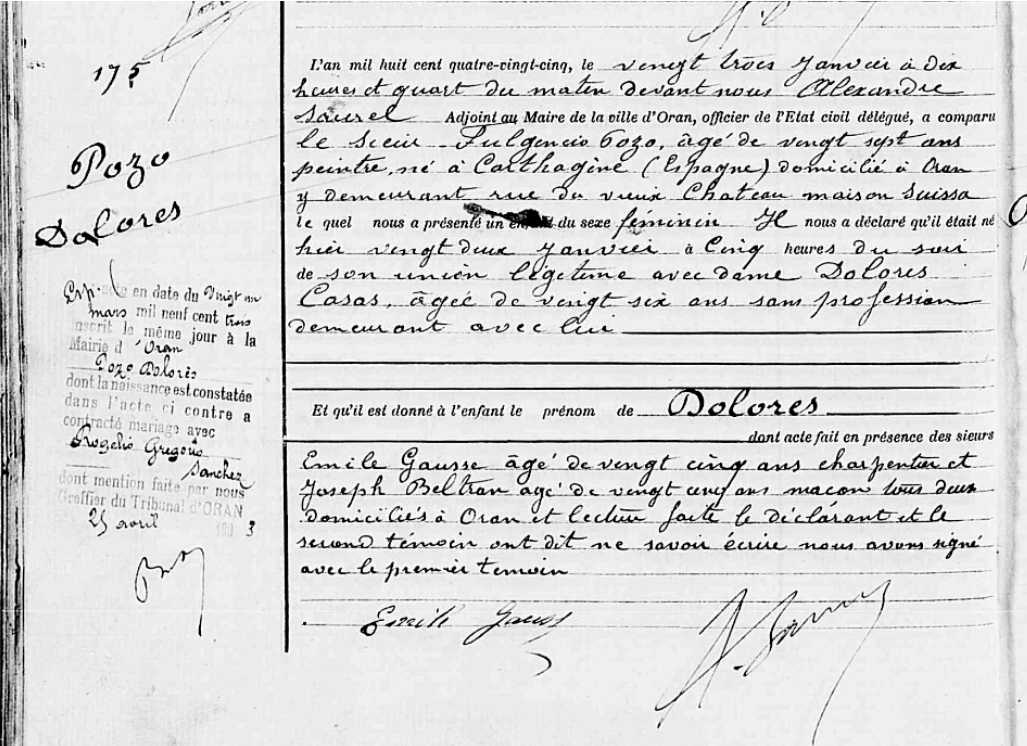 175
Pozo
Dolores
en date du Vingt un
mars mil neuf cent trois
inscrit le même jour à la
Mairie d'Oran
Pozo Dolorès
dont la naissance est constatée
dans l'acte ci contre a
contracté mariage avec
Rogelio Gregorio
Sanchez
dont mention faite par nous
Greffier du Tribunal d'ORAN
25 avril 190 3
L'an mil huit cent quatre-vingt-cinq, le vingt trois Janvier à dix
heures et quart du matin devant nous Alexandre
Saurel Adjoint au Maire de la ville d'Oran, officier de l'Etat civil délégué, a comparu
le sieur Fulgencio Pozo, âgé de vingt sept ans
peintre, né à Carthagène (Espagne) domicilié à Oran
y demeurant rue du vieux Chateau maison Suissa
le quel nous a présenté un enfant du sexe féminin Il nous a déclaré qu'il était né
hier vingt deux Janvier à Cinq heures du soir
de son union légitime avec dame Dolores
Casas, âgée de vingt six ans sans profession
demeurant avec lui
Et qu'il est donné à l'enfant le prénom de Dolores
dont acte fait en présence des sieurs
Emile Gausse âgé de vengt cinq ans charpentier et
Joseph Beltran agé de vengt cinq ans macon tous deux
domiciliés à Oran et lecture faite le déclarant et le
second témoin ont dit ne savoir écrire nous avons signé
avec le premier temoin
Emile Gauss